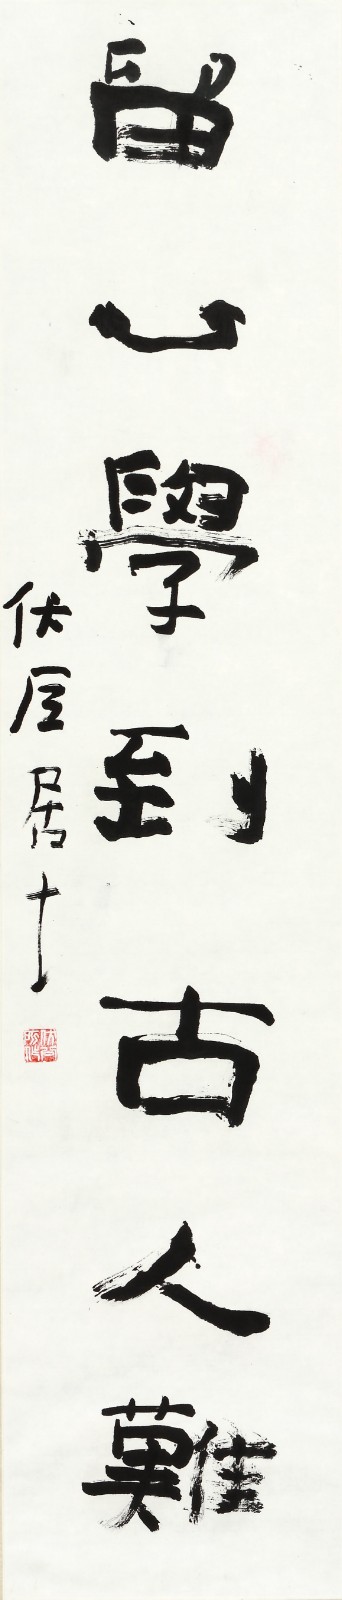 留心學到古人難
伏 居